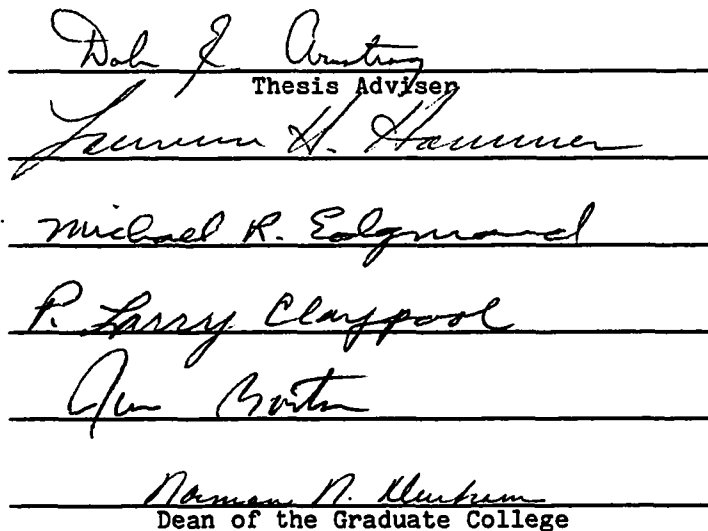 Dale R. Armstrong
Thesis Adviser
Lawrence H. Hammer
Michael R. Edgmand
P. Larry Claypool
Jim
Norman N. Durham
Dean of the Graduate College